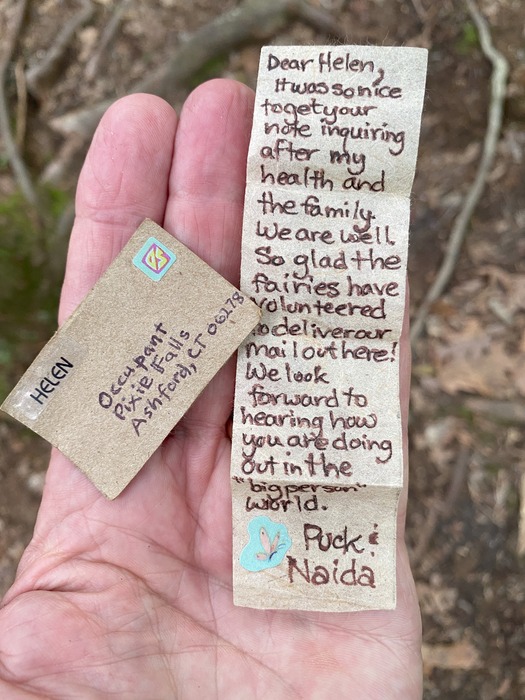 Dear Helen,
It was so nice
to get your
note inquiring
after my
health and
the family.
We are well.
So glad the
fairies have
volunteered
to deliver our
mail out here!
We look
forward to
hearing how
you are doing
out in the
"big person"
world.
Puck &
Naida
HELEN
Occupant
Pixie Falls
Ashford, CT 06278